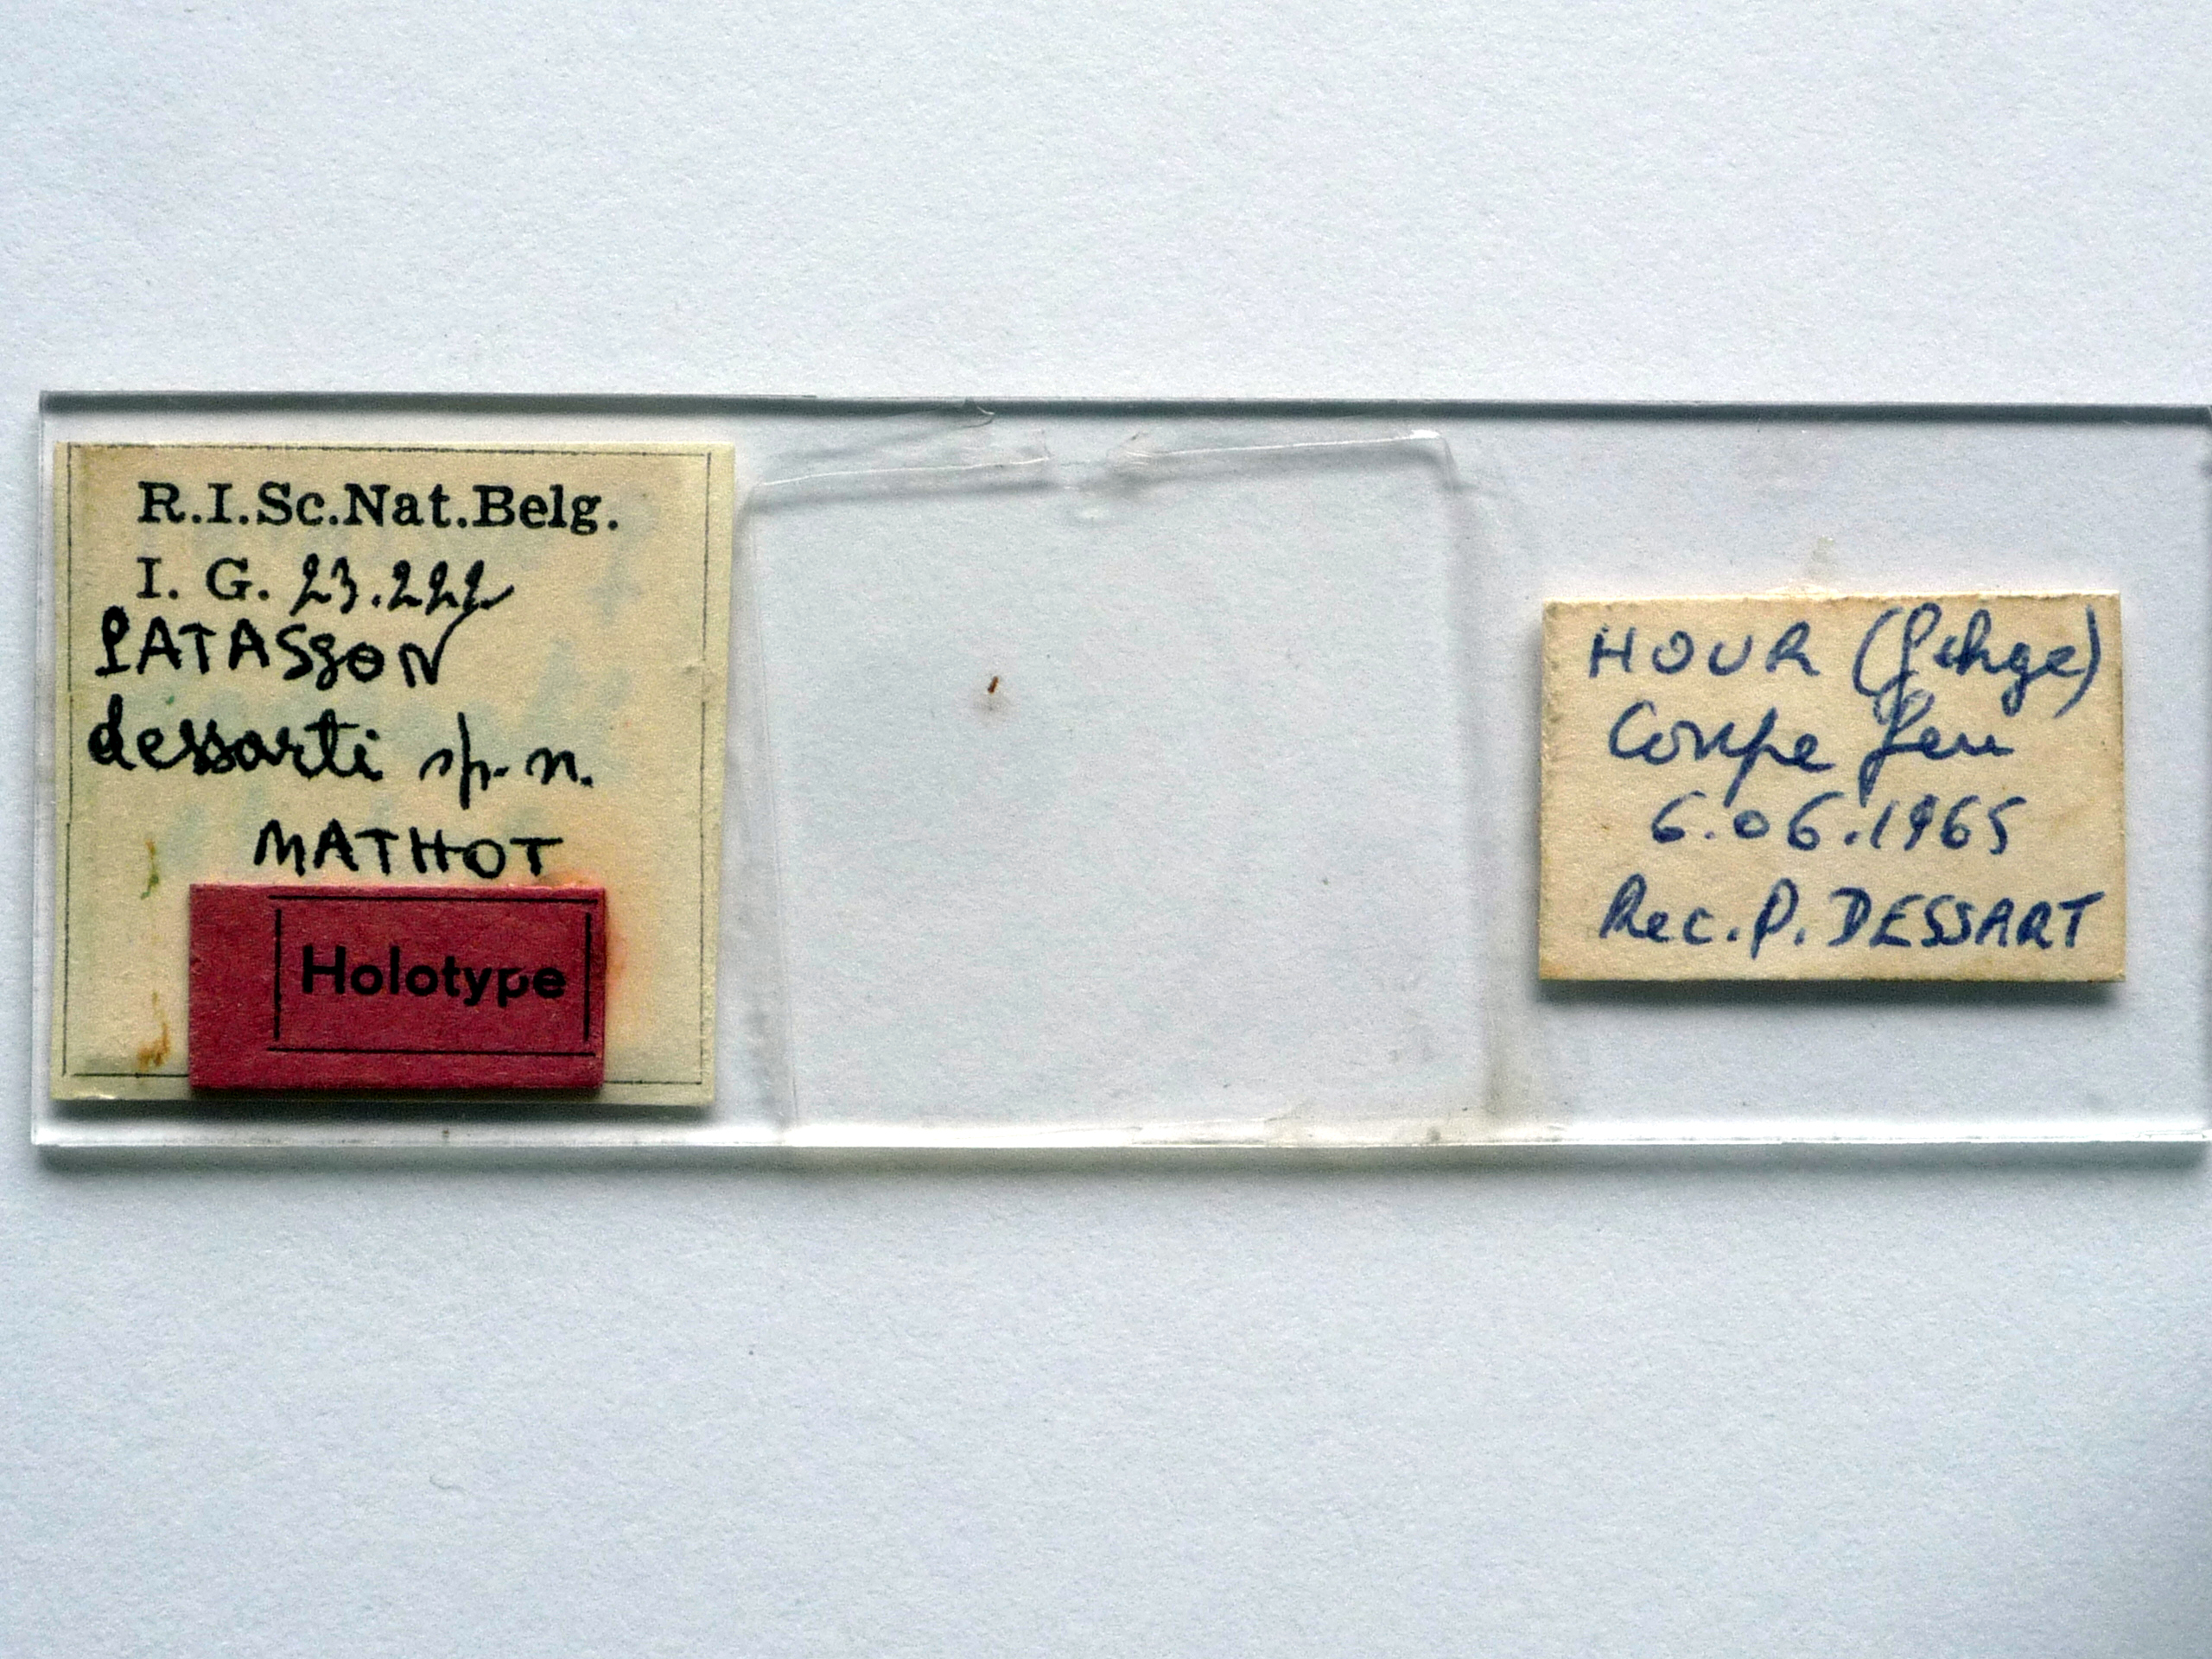 R.I.Sc.Nat.Belg.
I. G. 23.222
PATASSON
dessarti sp. n.
MATHOT
Holotype
HOUR (
Coupe feu
6.06.1965
Rec. P. DESSART